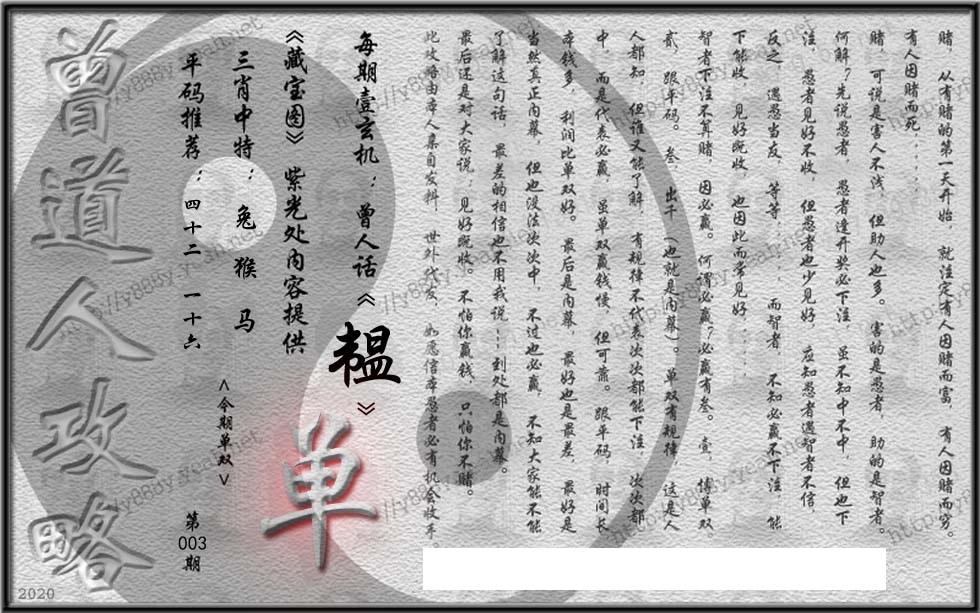 赌，从有赌的第一天开始，就注定有人因赌而富，有人因赌而穷。
有人因赌而死······
赌，可说是害人不浅，但助人也多。害的是愚者，助的是智者。
何解？先说愚者，愚者逢开奖必下注，虽不知中不中，但也下
注，愚者见好不收，但愚者也少见好，应知愚者遇智者不信，
反之，遇愚当友，等等······，而智者，不知必赢不下注，能
下能收，见好既收，也因此而常见好······
智者下注不算赌，因必赢。何谓必赢？必赢有叁。壹，博单双，
贰，跟平码。叁，出千（也就是内幕）。单双有规律，这是人
人都知，但谁又能了解，有规律不代表次次都能下注，次次都
中，而是代表必赢，虽单双赢钱慢，但可靠。跟平码，时间长，
本钱多，利润比单双好。最后是内幕，最好也是最差，最好是
当然真正内幕，但也没法次次中，不过也必赢，不知大家能不能
了解这句话，最差的相信也不用我说······到处都是内幕。
最后还是对大家说：见好既收。不怕你赢钱，只怕你不赌。
此攻略由本人集自发料，世外代友，如愿信本愚者必有机会收手。
每期壹玄机：曾人话《韫》
《藏宝图》紫光处内容提供
三肖中特：兔 猴 马
平码推荐：四十二 一十六
<今期单双>
单
第
003
期
曾道人攻略
2020